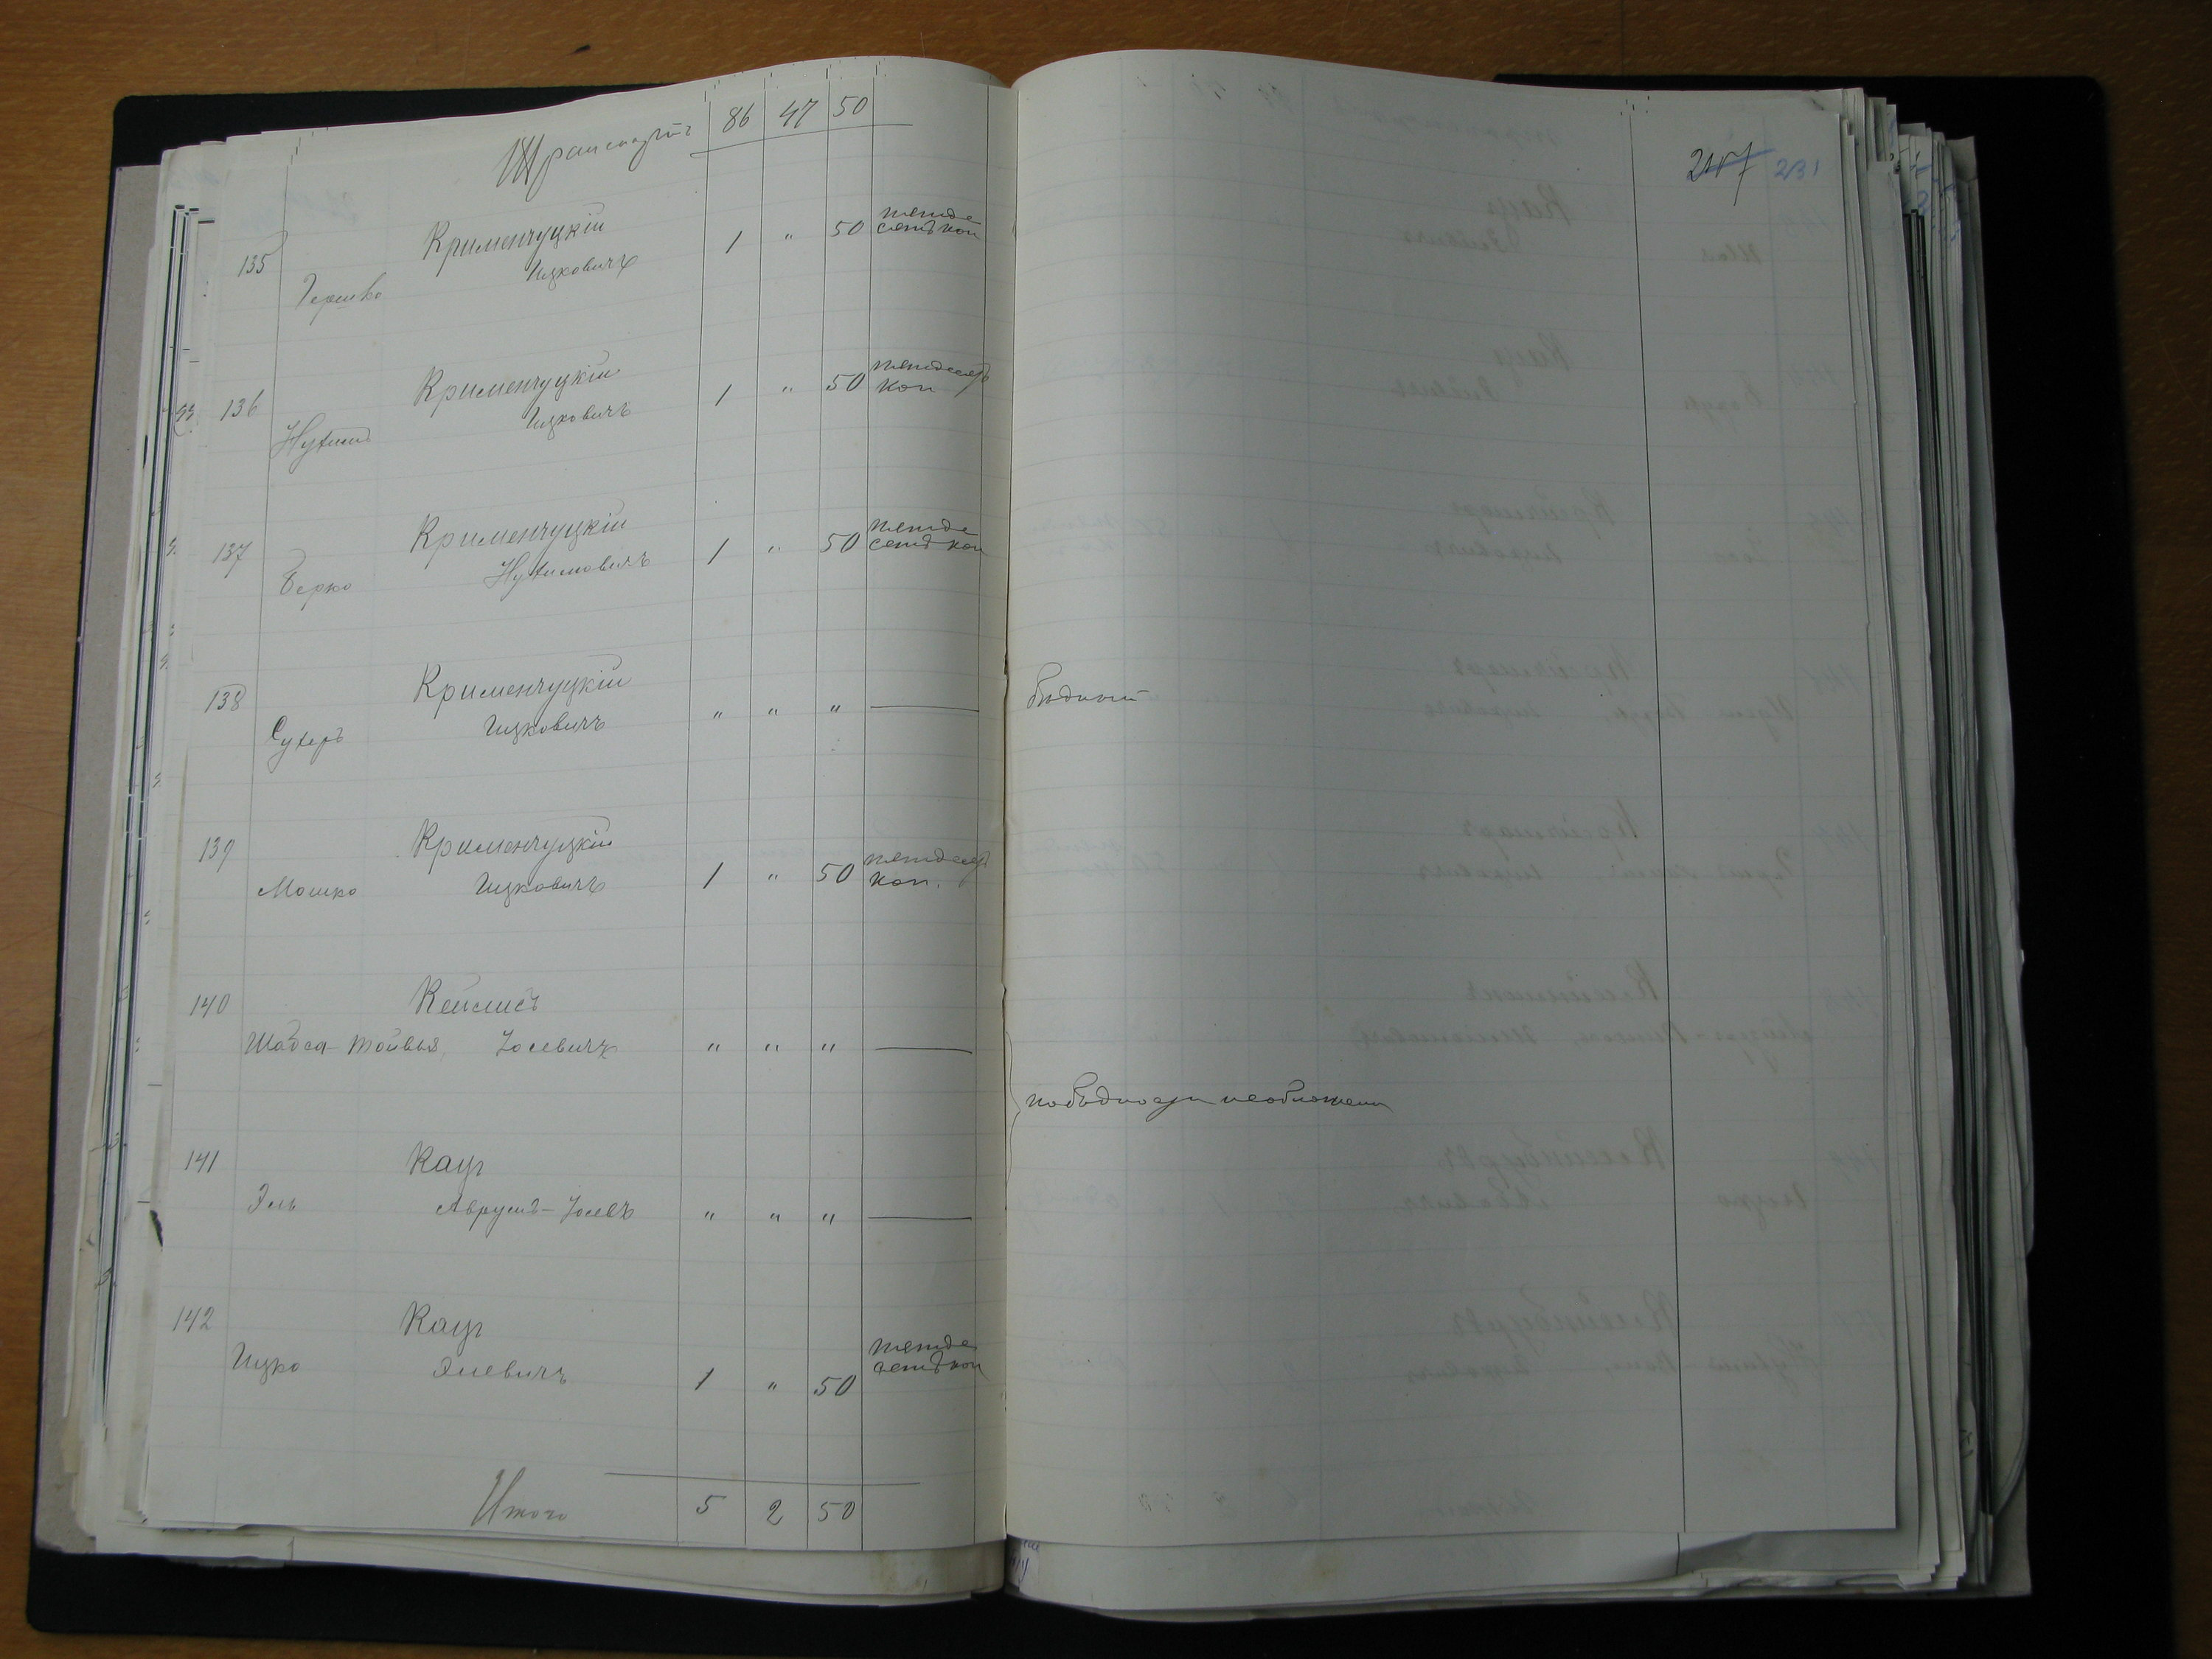 Транспортъ 86 47 50
135 Кременчуцкій
Гершко Ицковичъ 1 " 50 пятьде
сятъ коп
136 Кременчуцкій
Нухимъ Ицковичъ 1 " 50 пятьдесятъ
коп
137 Кременчуцкій
Берко Нухимовичъ 1 " 50 пятьде
сятъ коп
138 Кременчуцкій
Сухеръ Ицковичъ " " " —
139 Кременчуцкій
Мошко Ицковичъ 1 " 50 пятьдесятъ
коп.
140 Кейлисъ
Шабса-Тойвья, Іосевичъ " " " —
141 Кацъ
Эль Аврумъ-Іосевъ " " " —
142 Кацъ
Ицко Элевичъ 1 " 50 пятьде
сятъ коп
Итого 5 2 50
231
бѣдный
по бѣдности необложены